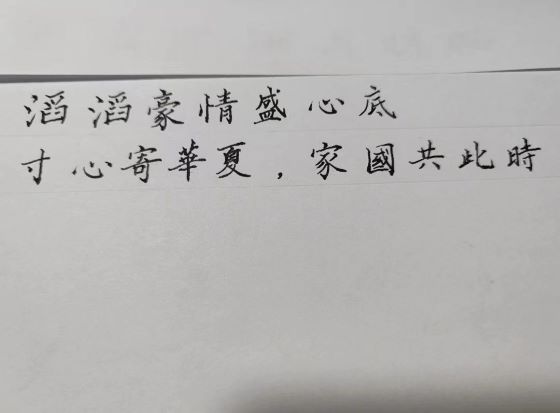 滔滔豪情盛心底
寸心寄華夏，家國共此時